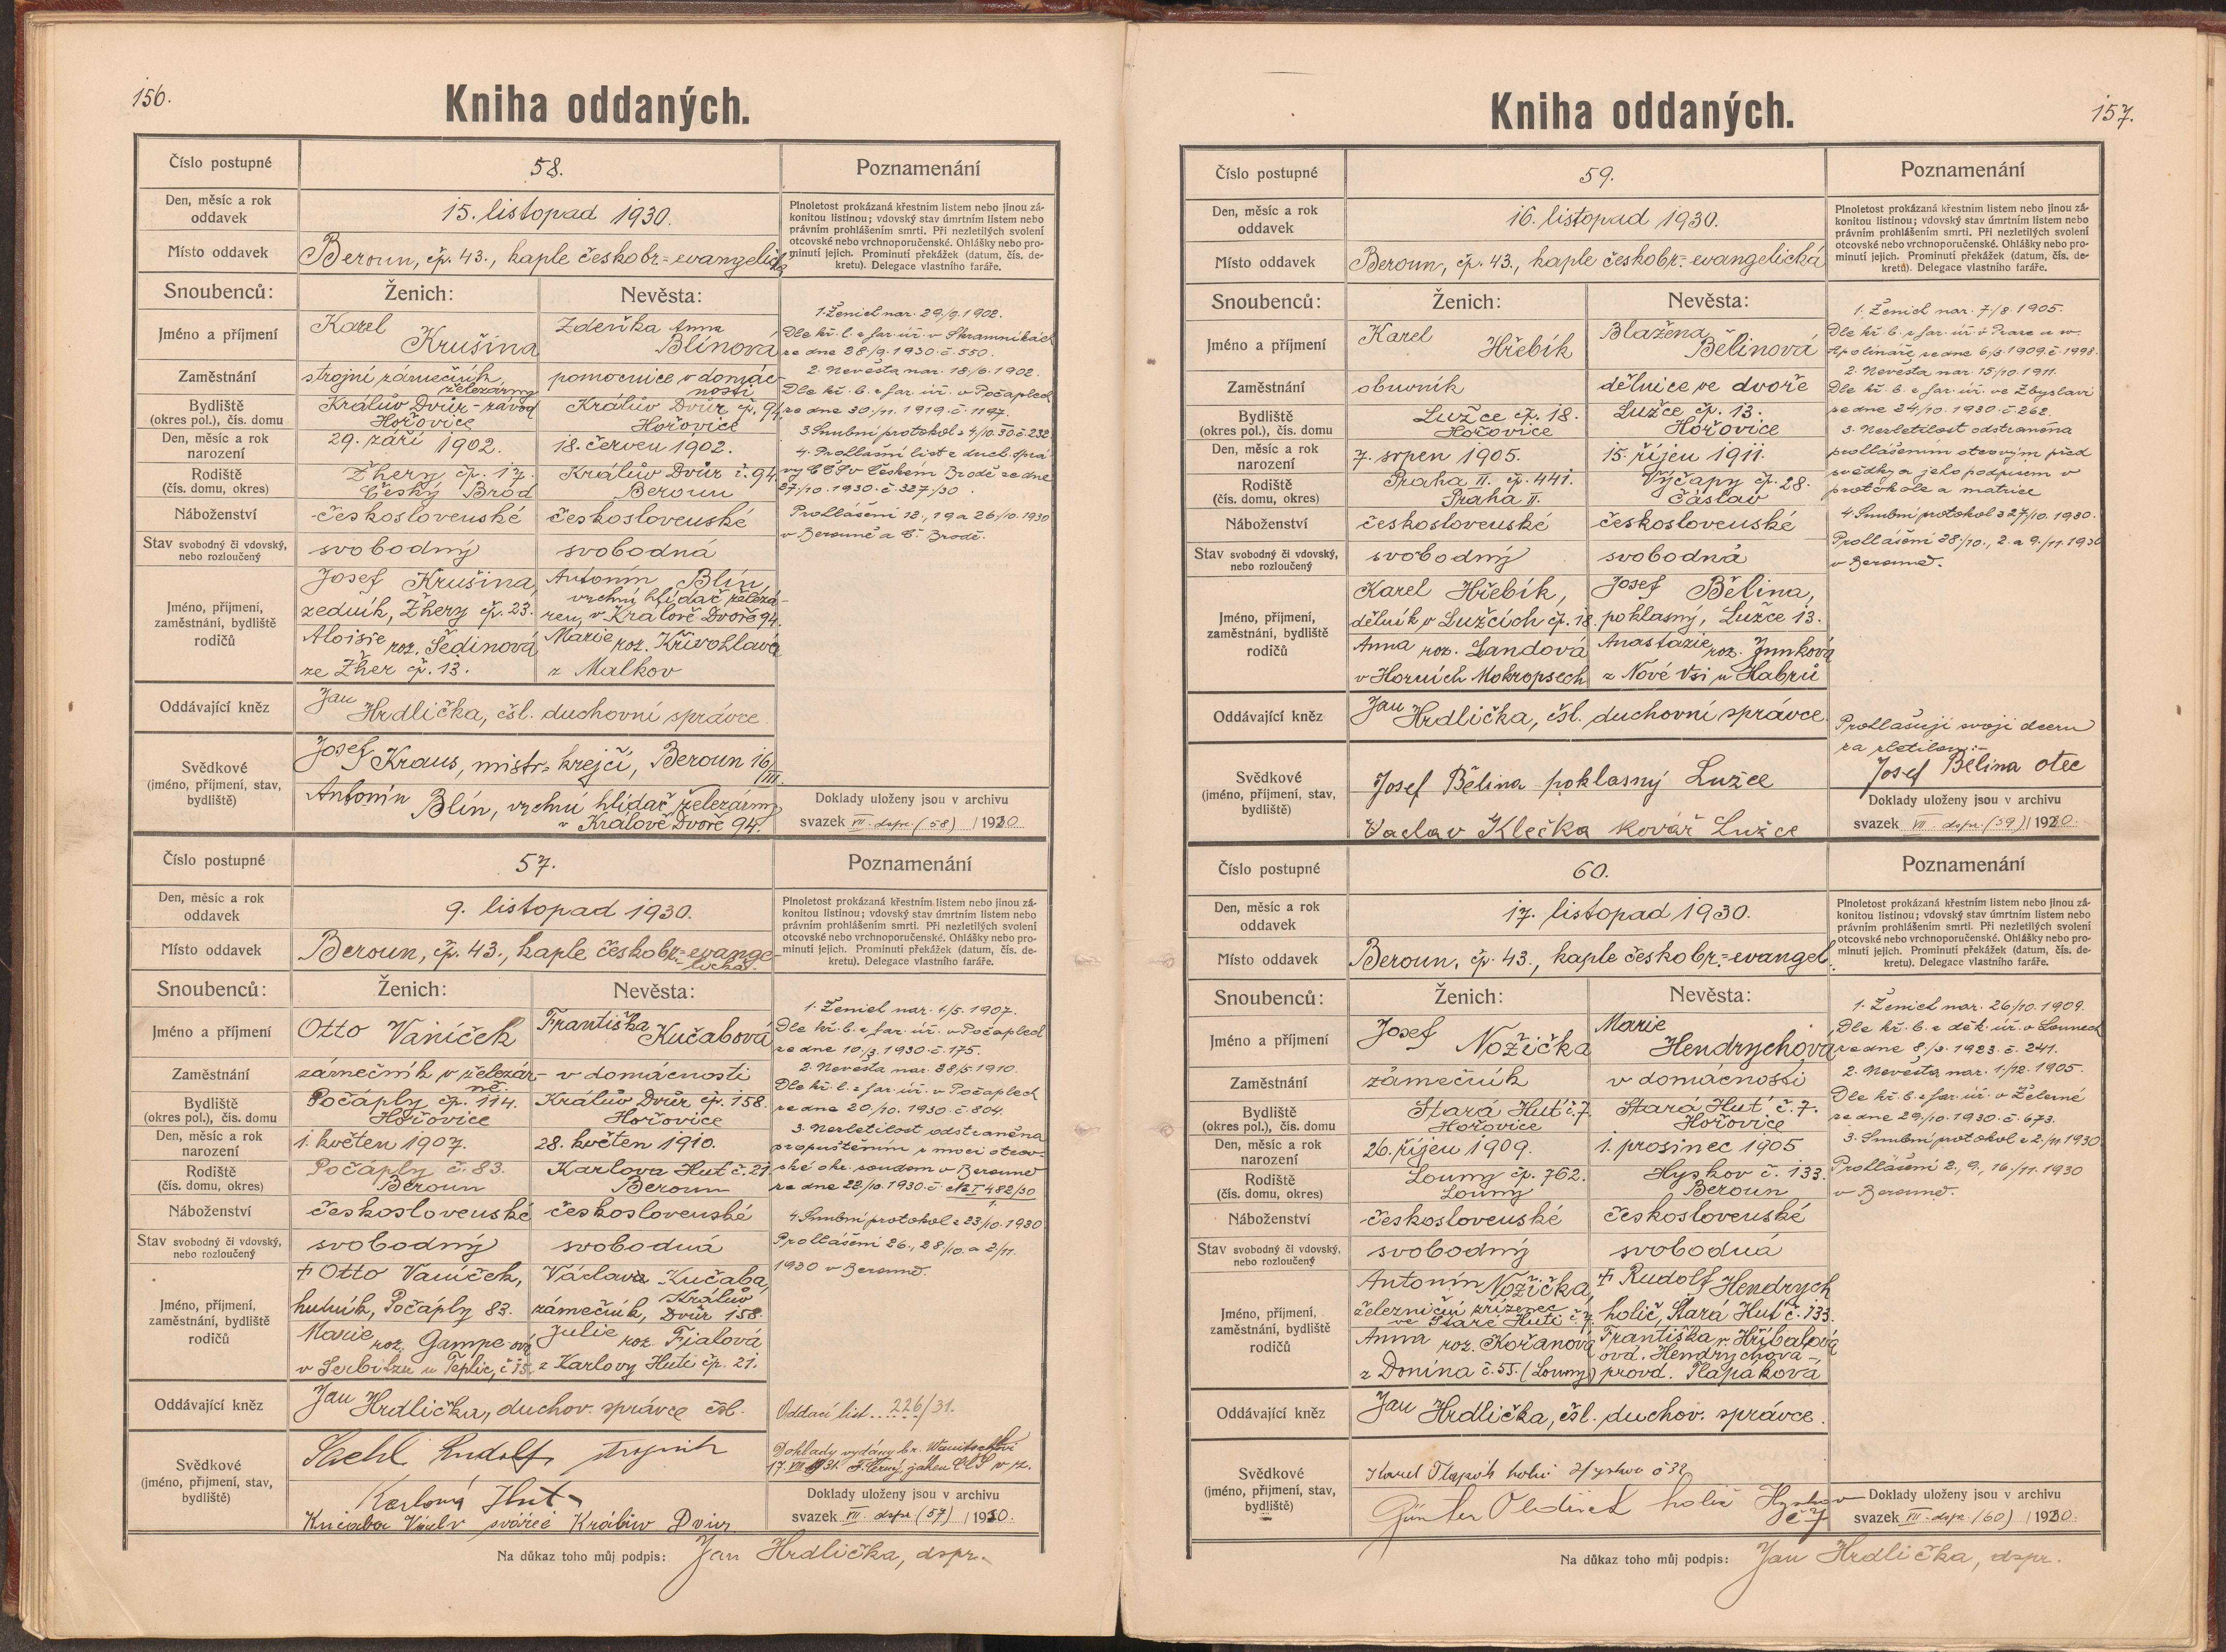 156.
Kniha oddaných.
Číslo postupné
58.
Poznamenání
Den, měsíc a rok
oddavek
15. listopad 1930.
Plnoletost prokázaná křestním listem nebo jinou zá-
konitou listinou; vdovský stav úmrtním listem nebo
právním prohlášením smrti. Při nezletilých svolení
otcovské nebo vrchnoporučenské. Ohlášky nebo pro-
minutí jejich. Prominutí překážek (datum, čís. de-
kretu). Delegace vlastního faráře.
Místo oddavek
Beroun, čp. 43., kaple českobr=evangelická
Snoubenců:
Ženich:
Nevěsta:
Jméno a příjmení
Karel
Krušina
Zdeňka Anna
Blínová
Zaměstnání
strojní zámečník,
železárny
pomocnice v domác-
nosti
Bydliště
(okres pol.), čís. domu
Králův Dvůr-závod
Hořovice
Králův Dvůr čp. 94.
Hořovice
Den, měsíc a rok
narození
29. září 1902.
18. červen 1902.
Rodiště
(čís. domu, okres)
Žhery čp. 17.
Český Brod
Králův Dvůr č. 94.
Beroun
Náboženství
československé
československé
Stav svobodný či vdovský,
nebo rozloučený
svobodný
svobodná
Jméno, příjmení,
zaměstnání, bydliště
rodičů
Josef Krušina,
zedník, Žhery čp. 23.
Aloisie roz. Šedinová
ze Žher čp. 13.
Antonín Blín,
vrchní hlídač železá-
ren, v Králově Dvoře 94.
Marie roz. Křivohlavá
z Malkov
1. Ženich nar. 29./9. 1902.
Dle kř. l. z far. úř. v Skramníkách
ze dne 28/9. 1930. č. 550.
2. Nevěsta nar. 18/6. 1902.
Dle kř. l. z far. úř. v Počaplech
ze dne 30/11. 1919. č. 1197.
3. Snubní protokol z 4/10. 30. č. 232
4. Prohlašní list z duch. sprá
vy CČS v Českém Brodě ze dne
27/10. 1930. č. 327/30.
Prohlášení 12., 19 a 26./10. 1930
v Berouně a Č. Brodě.
Oddávající kněz
Jan
Hrdlička, čsl. duchovní správce
Svědkové
(jméno, příjmení, stav,
bydliště)
Josef Kraus, mistr=krejčí, Beroun 16/
III.
Antonín Blín, vrchní hlídač železárny
v Králově Dvoře 94.
Doklady uloženy jsou v archivu
svazek VII. dspr. (58) /1930
Číslo postupné
57.
Poznamenání
Den, měsíc a rok
oddavek
9. listopad 1930.
Plnoletost prokázaná křestním listem nebo jinou zá-
konitou listinou; vdovský stav úmrtním listem nebo
právním prohlášením smrti. Při nezletilých svolení
otcovské nebo vrchnoporučenské. Ohlášky nebo pro-
minutí jejich. Prominutí překážek (datum, čís. de-
kretu). Delegace vlastního faráře.
Místo oddavek
Beroun, čp. 43., kaple českobr=evange-
lická.
Snoubenců:
Ženich:
Nevěsta:
Jméno a příjmení
Otto Vaníček
Františka
Kučabová
Zaměstnání
zámečník v železár-
ně.
v domácnosti
Bydliště
(okres pol.), čís. domu
Počaply čp. 114.
Hořovice
Králův Dvůr čp. 158.
Hořovice
Den, měsíc a rok
narození
1. květen 1907.
28. květen 1910.
Rodiště
(čís. domu, okres)
Počaply č. 83.
Beroun
Karlova Huť č. 21
Beroun
Náboženství
československé
československé
Stav svobodný či vdovský,
nebo rozloučený
svobodný
svobodná
Jméno, příjmení,
zaměstnání, bydliště
rodičů
† Otto Vaníček,
hutník, Počaply 83.
Marie roz. Gampe-ová
v Serbitzu u Teplic, č 15.
Václav Kučaba,
zámečník, Králův
Dvůr 158.
Julie roz. Fialová
z Karlovy Huti čp. 21.
1. Ženich nar. 1/5. 1907.
Dle kř. l. z far. úř. v Počaplech
ze dne 10/3. 1930. č. 175.
2. Nevěsta nar. 28/5 1910.
Dle kř. l. z far. úř. v Počaplech
ze dne 20/10. 1930. č. 804.
3. Nezletilost odstraněna
propuštěním z moci otcov-
ské okr. soudem v Berouně
ze dne 22/10. 1930. č. Nc I 482/30
4. Snubní protokol z 23/10. 1930
Prohlášení 26., 28/10. a 2/11.
1930 v Berouně.
Oddávající kněz
Jan
Hrdlička, duchov. správce čsl.
Oddací list....226/31.
Svědkové
(jméno, příjmení, stav,
bydliště)
Rudolf strojník
Karlová Huť
Kučaba Václv svářeč Králův Dvůr.
Doklady vydány br.
17. VII 1931. F. Černý, jáhen CČS
Doklady uloženy jsou v archivu
svazek VII. dspr. (57) /1930.
Na důkaz toho můj podpis: Jan Hrdlička, dspr.
157.
Kniha oddaných.
Číslo postupné
59.
Poznamenání
Den, měsíc a rok
oddavek
16. listopad 1930.
Plnoletost prokázaná křestním listem nebo jinou zá-
konitou listinou; vdovský stav úmrtním listem nebo
právním prohlášením smrti. Při nezletilých svolení
otcovské nebo vrchnoporučenské. Ohlášky nebo pro-
minutí jejich. Prominutí překážek (datum, čís. de-
kretu). Delegace vlastního faráře.
Místo oddavek
Beroun, čp. 43., kaple českobr=evangelická
Snoubenců:
Ženich:
Nevěsta:
Jméno a příjmení
Karel
Hřebík
Blažena
Bělinová
Zaměstnání
obuvník
dělnice ve dvoře
Bydliště
(okres pol.), čís. domu
Lužce čp. 18.
Hořovice
Lužce čp. 13.
Hořovice
Den, měsíc a rok
narození
7. srpen 1905.
15. říjen 1911.
Rodiště
(čís. domu, okres)
Praha II. čp. 441.
Praha II.
Výčapy čp. 28.
Čáslav
Náboženství
československé
československé
Stav svobodný či vdovský,
nebo rozloučený
svobodný
svobodná
Jméno, příjmení,
zaměstnání, bydliště
rodičů
Karel Hřebík,
dělník v Lužcích čp. 18.
Anna roz. Landová
v Horních Mokropsech
Josef Bělina,
poklasný, Lužce 13.
Anastazie roz. Junková
z Nové Vsi u Habrů
1. Ženich nar. 7/8. 1905.
Dle kř. l. z far. úř. v Praze u sv.
Apolináře, ze dne 6/3. 1909. č. 1998.
2. Nevěsta nar. 15/10. 1911.
Dle kř. l. z far. úř. ve Zbyslavi
ze dne 24/10. 1930. č. 262.
3. Nezletilost odstraněna
prohlášením otcovým před
svědky a jeho podpisem v
protokole a matrice
4. Snubní protokol z 27/10. 1930.
Prohlášení 28/10., 2. a 9./11. 1930
v Berouně.
Oddávající kněz
Jan
Hrdlička, čsl. duchovní správce.
Prohlašuji svoji dceru
za zletilou:-
Josef Bělina otec
Svědkové
(jméno, příjmení, stav,
bydliště)
Josef Bělina poklasný Lužce
Vaclav Klečka kovář Lužce
Doklady uloženy jsou v archivu
svazek VII. dspr. (59) /1930.
Číslo postupné
60.
Poznamenání
Den, měsíc a rok
oddavek
17. listopad 1930.
Plnoletost prokázaná křestním listem nebo jinou zá-
konitou listinou; vdovský stav úmrtním listem nebo
právním prohlášením smrti. Při nezletilých svolení
otcovské nebo vrchnoporučenské. Ohlášky nebo pro-
minutí jejich. Prominutí překážek (datum, čís. de-
kretu). Delegace vlastního faráře.
Místo oddavek
Beroun, čp. 43., kaple českobr=evangel.
Snoubenců:
Ženich:
Nevěsta:
Jméno a příjmení
Josef
Nožička
Marie
Hendrychová
Zaměstnání
zámečník
v domácnosti
Bydliště
(okres pol.), čís. domu
Stará Huť č. 7.
Hořovice
Stará Huť č. 7.
Hořovice
Den, měsíc a rok
narození
26. říjen 1909.
1. prosinec 1905
Rodiště
(čís. domu, okres)
Louny čp. 762.
Louny
Hyskov č. 133.
Beroun
Náboženství
československé
československé
Stav svobodný či vdovský,
nebo rozloučený
svobodný
svobodná
Jméno, příjmení,
zaměstnání, bydliště
rodičů
Antonín Nožička,
železniční zřízenec
ve Staré Huti č. 7.
Anna roz. Kořanová
z Donína č. 55. (Louny)
† Rudolf Hendrych
holič, Stará Huť č. 133.
Františka r. Hříbalová
ovd. Hendrychová-,
provd. Tlapáková
1. Ženich nar. 26/10. 1909.
Dle kř. l. z děk. úř. v Lounech
ze dne 8./3. 1923. č. 241.
2. Nevěsta nar. 1/12. 1905.
Dle kř. l. z far. úř. v Železné
ze dne 29./10. 1930. č. 673.
3. Snubní protokol z 2./11. 1930
Prohlášení 2., 9., 16./11. 1930
v Berouně.
Oddávající kněz
Jan
Hrdlička, čsl. duchov. správce.
Svědkové
(jméno, příjmení, stav,
bydliště)
Karel Tlapák holič Hyskov č 32
Günter Oldřich holič Hyskov
č 7
Doklady uloženy jsou v archivu
svazek VII. dspr. (60) /1930.
Na důkaz toho můj podpis: Jan Hrdlička, dspr.